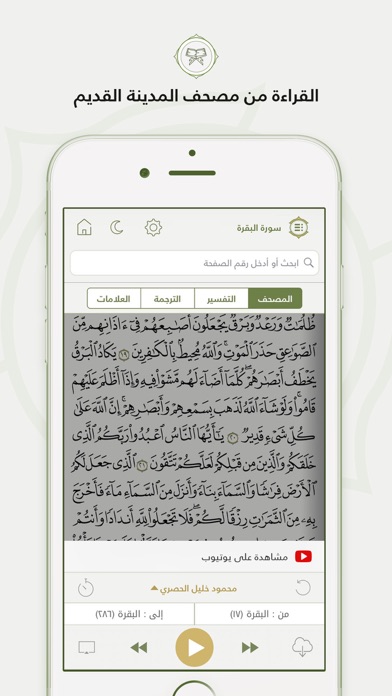 القراءة من مصحف المدينة القديم
سورة البقرة
ابحث أو أدخل رقم الصفحة
المصحف
التفسير
الترجمة
العلامات
ظُلُمَٰتٌ وَرَعْدٌ وَبَرْقٌ يَجْعَلُونَ أَصَٰبِعَهُمْ فِىٓ ءَاذَانِهِم مِّنَ
ٱلصَّوَٰعِقِ حَذَرَ ٱلْمَوْتِ ۚ وَٱللَّهُ مُحِيطٌۢ بِٱلْكَٰفِرِينَ ١٩ يَكَادُ ٱلْبَرْقُ
يَخْطَفُ أَبْصَٰرَهُمْ ۖ كُلَّمَآ أَضَآءَ لَهُم مَّشَوْا۟ فِيهِ وَإِذَآ أَظْلَمَ عَلَيْهِمْ
قَامُوا۟ ۚ وَلَوْ شَآءَ ٱللَّهُ لَذَهَبَ بِسَمْعِهِمْ وَأَبْصَٰرِهِمْ ۚ إِنَّ ٱللَّهَ عَلَىٰ
كُلِّ شَىْءٍ قَدِيرٌ ٢٠ يَٰٓأَيُّهَا ٱلنَّاسُ ٱعْبُدُوا۟ رَبَّكُمُ ٱلَّذِى
خَلَقَكُمْ وَٱلَّذِينَ مِن قَبْلِكُمْ لَعَلَّكُمْ تَتَّقُونَ ٢١ ٱلَّذِى جَعَلَ لَكُمُ
ٱلْأَرْضَ فِرَٰشًا وَٱلسَّمَآءَ بِنَآءً وَأَنزَلَ مِنَ ٱلسَّمَآءِ مَآءً فَأَخْرَجَ
بِهِۦ مِنَ ٱلثَّمَرَٰتِ رِزْقًا لَّكُمْ ۖ فَلَا تَجْعَلُوا۟ لِلَّهِ أَندَادًا وَأَنتُمْ
مشاهدة على يوتيوب
محمود خليل الحصري
من : البقرة (١٧)
إلى : البقرة (٢٨٦)